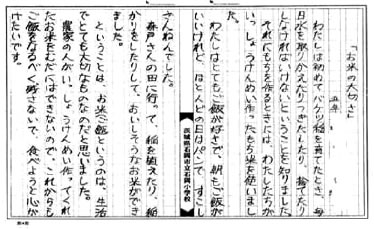 「お米の大切さ」
五年
わたしは初めてバケツ稲を育てたとき、毎
日水を取りかえたりつぎたしたり、捨てたり
しなければいけないということを知りました。
それにもちを作るときには、わたしたちが
いっしょうけんめい作ったもち米を使いまし
た。
わたしはとてもご飯が好きで、朝もご飯が
いいけれど、ほとんどの日はパンで、すこし
ざんねんでした。
森戸さんの田に行って、稲を植えたり、稲
かりをしたりして、おいしそうなお米ができ
ました。
ということは、お米、ご飯というのは、生活
でとても大切なものなのだと思いました。
農家の人がいっしょうけんめい作ってくれ
たお米をむだにはできないので、これからも
ご飯をなるべく残さないで、食べようと心が
けたいです。
茨城県石岡市立石岡小学校